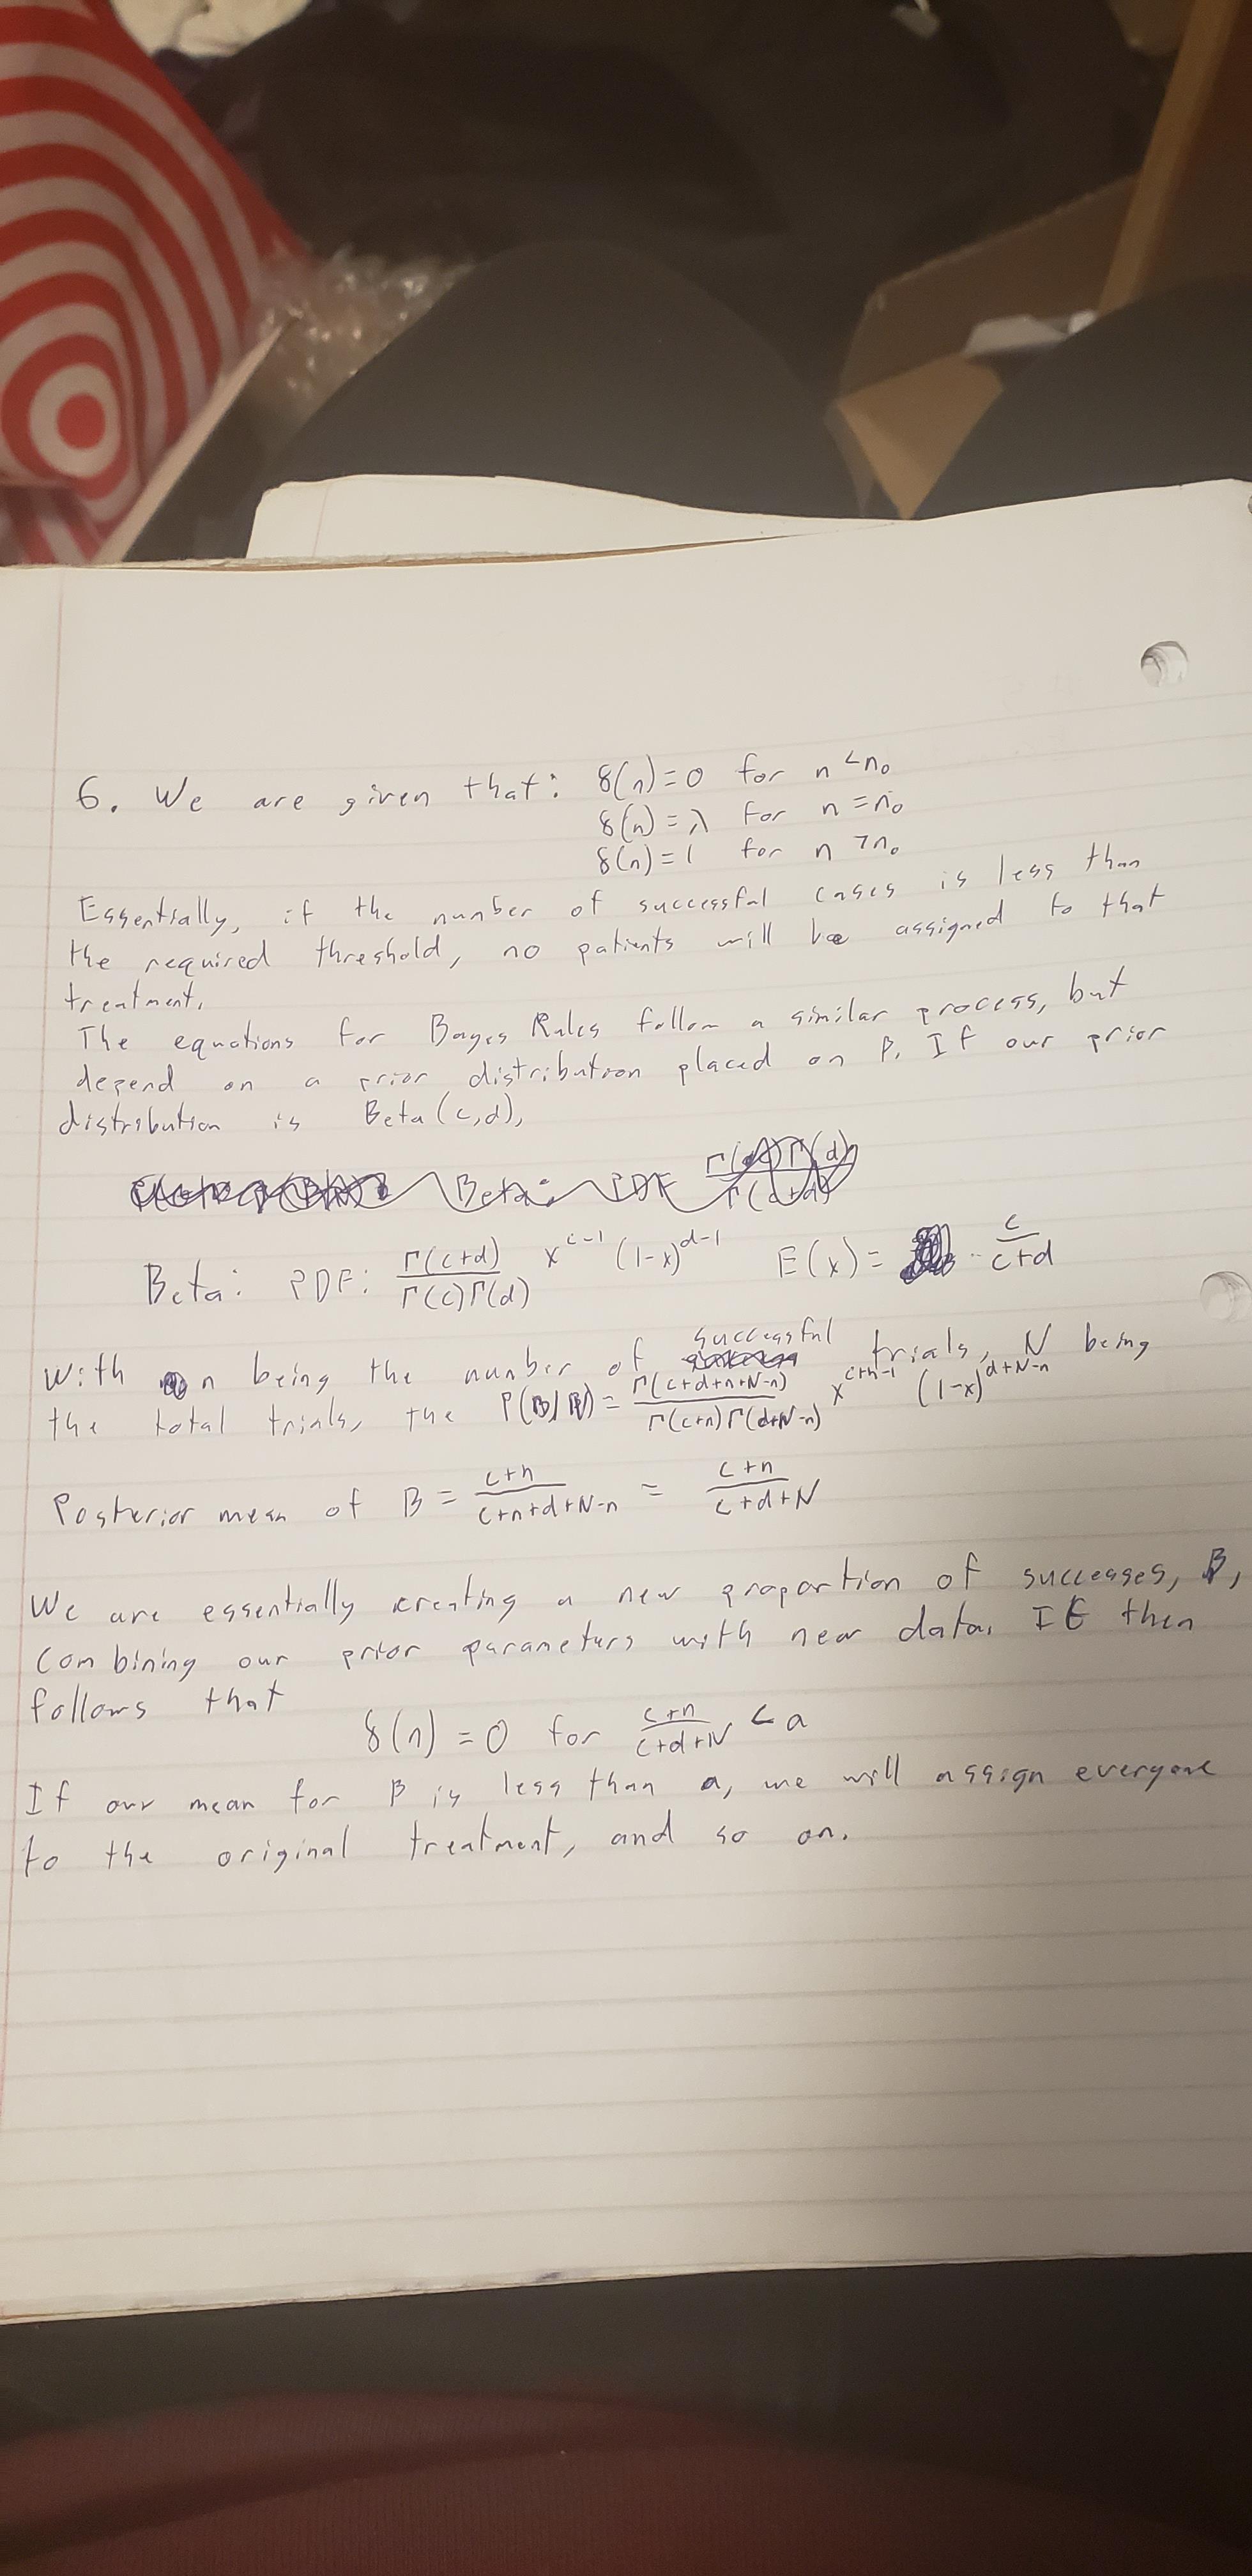 6. We are given that: δ(n) = 0 for n < n₀
δ(n) = λ for n = n₀
δ(n) = 1 for n > n₀
Essentially, if the number of successful cases is less than
the required threshold, no patients will be assigned to that
treatment.
The equations for Bayes Rules follow a similar process, but
depend on a prior distribution placed on β. If our prior
distribution is Beta(c,d),
Beta: PDF: Γ(c+d)/Γ(c)Γ(d) x^(c-1) (1-x)^(d-1) E(x) = c/c+d
With n being the number of successful trials, N being
the total trials, the P(β|B) = Γ(c+d+n+N-n)/Γ(c+n)Γ(d+N-n) x^(c+n-1) (1-x)^(d+N-n)
Posterior mean of B = c+n/c+n+d+N-n = c+n/c+d+N
We are essentially creating a new proportion of successes, β,
combining our prior parameters with new data. It then
follows that
δ(n) = 0 for c+n/c+d+N < a
If our mean for β is less than a, we will assign everyone
to the original treatment, and so on.